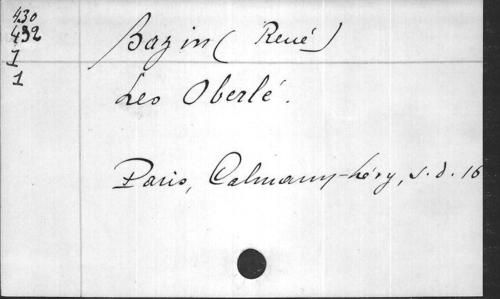 430
432
I
1
Bazin (René)
Les Oberlé.
Paris, Calmann-Lévy, s.d. 16